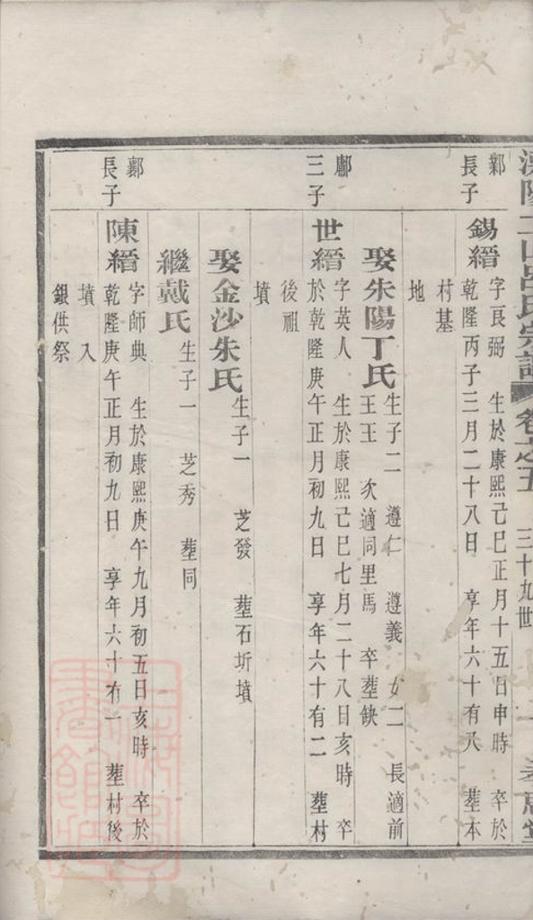 呂氏宗譜 卷之五 三十九世
鄴長子
錫縉 字良弼 生於康熙己巳正月十五日申時 卒於
乾隆丙子三月二十八日 享年六十有八 葬本
村基
地
娶朱陽丁氏 生子二 遵仁 遵義 女二 長適前
王王 次適同里馬 卒葬缺
三子
世縉 字英人 生於康熙己巳七月二十八日亥時 卒
於乾隆庚午正月初九日 享年六十有二 葬村
後祖
墳
娶金沙朱氏 生子一 芝發 葬石圻墳
繼戴氏 生子一 芝秀 葬同
鄴長子
陳縉 字師典 生於康熙庚午九月初五日亥時 卒於
乾隆庚午正月初九日 享年六十有一 葬村後
墳 入
銀供祭